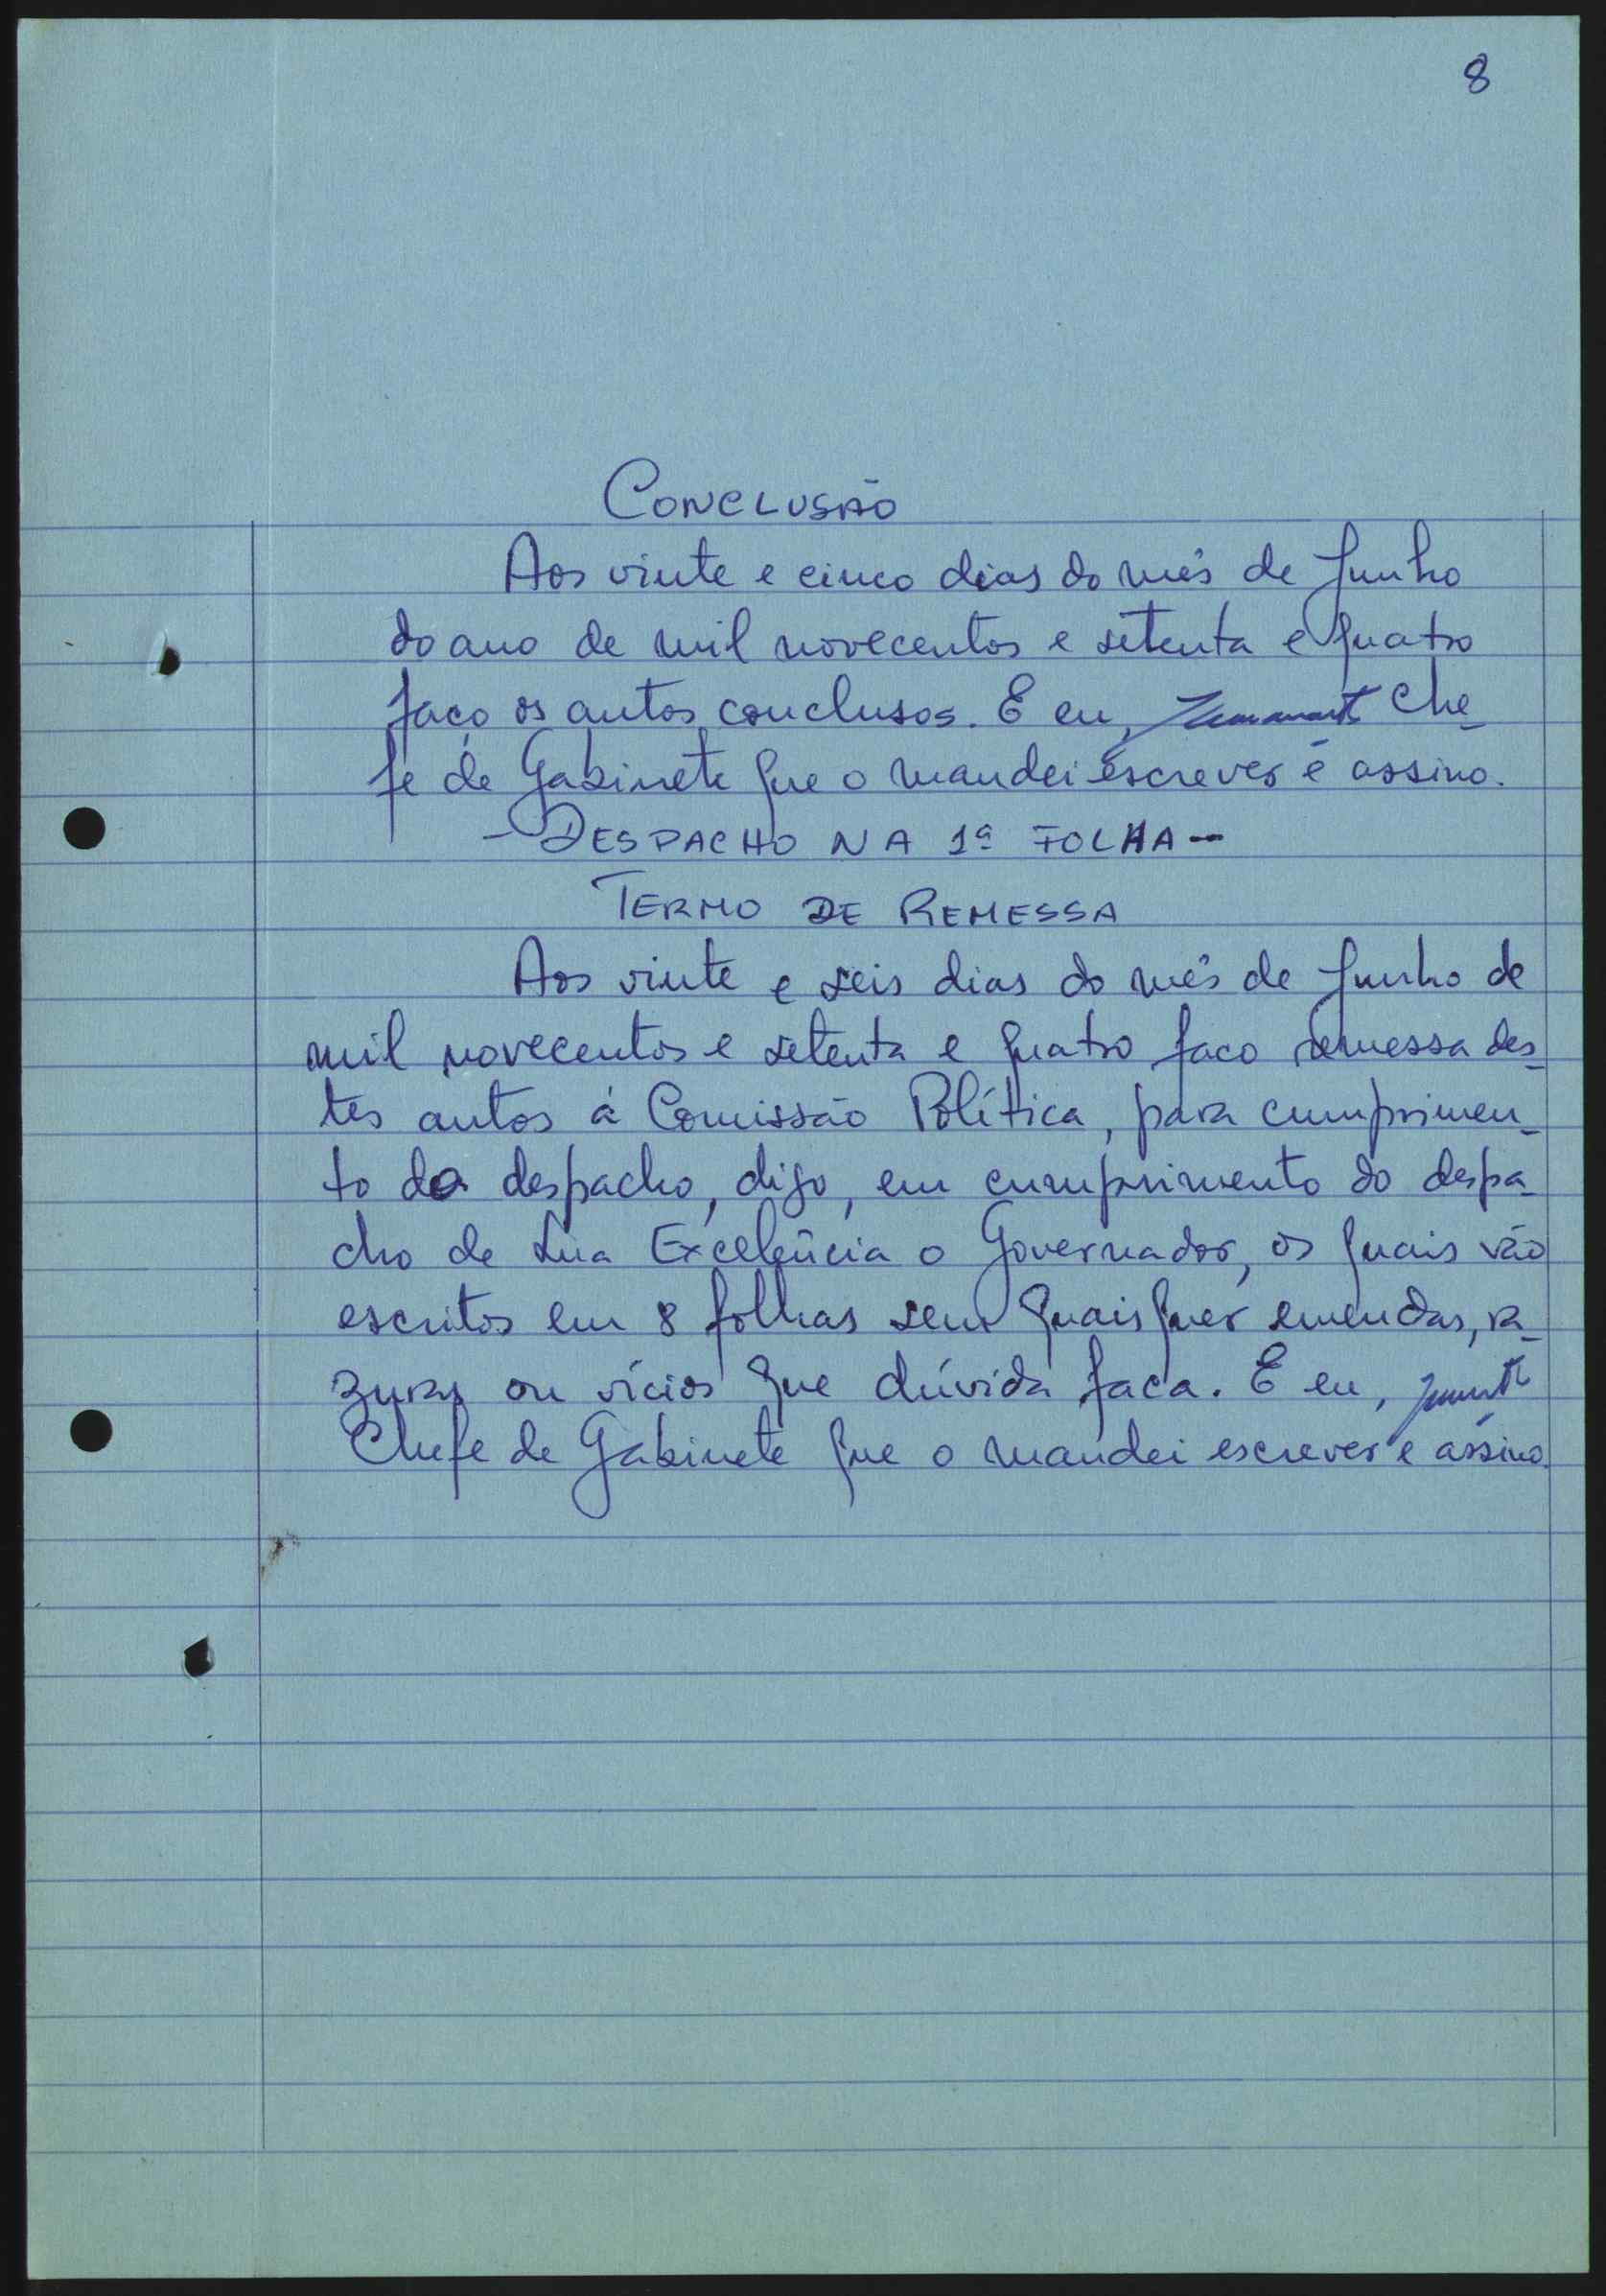 8
CONCLUSÃO
Aos vinte e cinco dias do mês de Junho
do ano de mil novecentos e setenta e quatro
faço os autos conclusos. E eu, Che-
fe de Gabinete que o mandei escrever e assino.
- DESPACHO NA 1ª FOLHA -
TERMO DE REMESSA
Aos vinte e seis dias do mês de Junho de
mil novecentos e setenta e quatro faço remessa des-
tes autos á Comissão Política, para cumprimen-
to do despacho, digo, em cumprimento do despa-
cho de Sua Excelência o Governador, os quais vão
escritos em 8 folhas sem quaisquer emendas, ra-
zuras ou vícios que dúvida faça. E eu,
Chefe de Gabinete que o mandei escrever e assino.